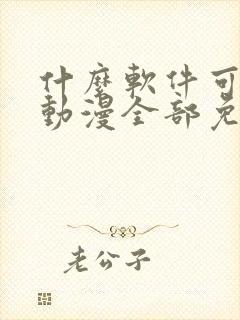 什麼軟件可
動漫全部免
老公子